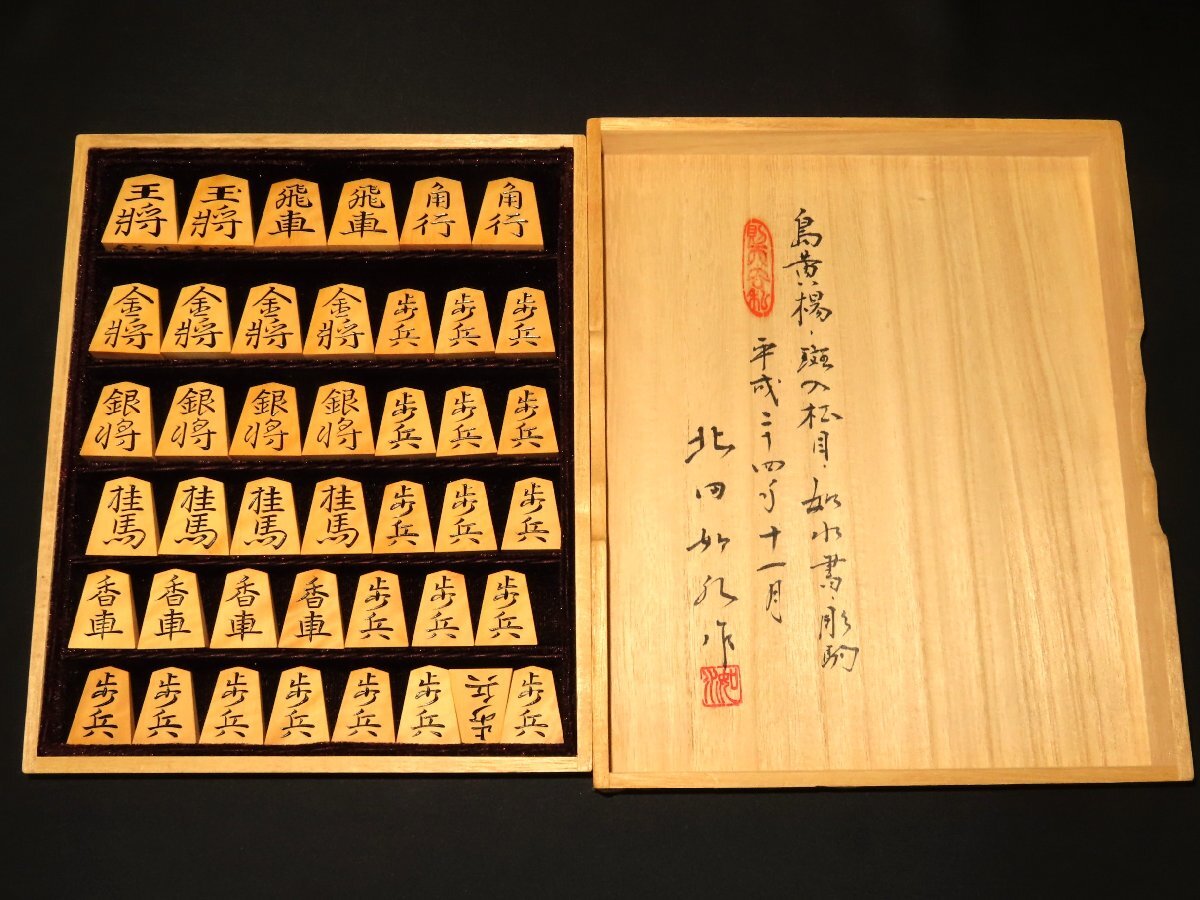 王将 玉将 飛車 飛車 角行 角行
金将 金将 金将 金将 歩兵 歩兵 歩兵
銀将 銀将 銀将 銀将 歩兵 歩兵 歩兵
桂馬 桂馬 桂馬 桂馬 歩兵 歩兵 歩兵
香車 香車 香車 香車 歩兵 歩兵 歩兵
歩兵 歩兵 歩兵 歩兵 歩兵 歩兵 歩兵 歩兵
島黄楊・斑入柾目・如水書・彫駒
則天去私
平成二十四年十一月
北田如水作
如水